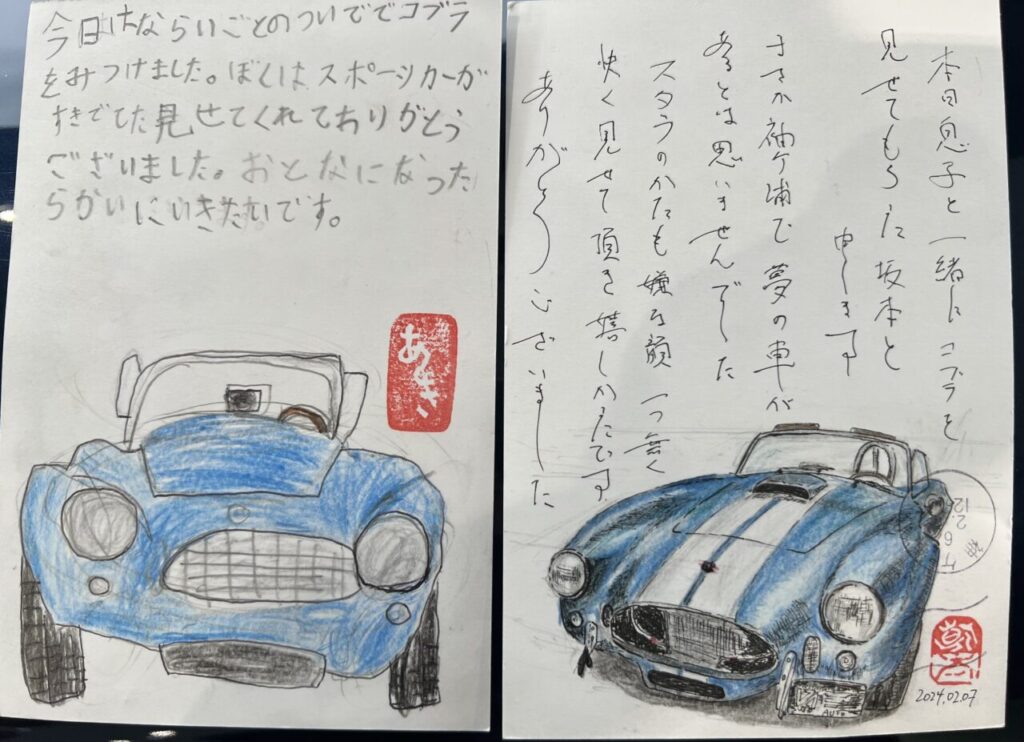 今日はならいごとのついででコブラ
をみつけました。ぼくはスポーツカーが
すきでした見せてくれてありがとう
ございました。おとなになった
らかいにいきたいです。
あきさ
本日息子と一緒にコブラを
見せてもらった坂本と
申します
まさか袖ケ浦で夢の車が
あるとは思いませんでした
スタッフのかたも嫌な顔一つ無く
快く見せて頂き嬉しかったです
ありがとうございました
12
2.6
AUTO
2024.02.07